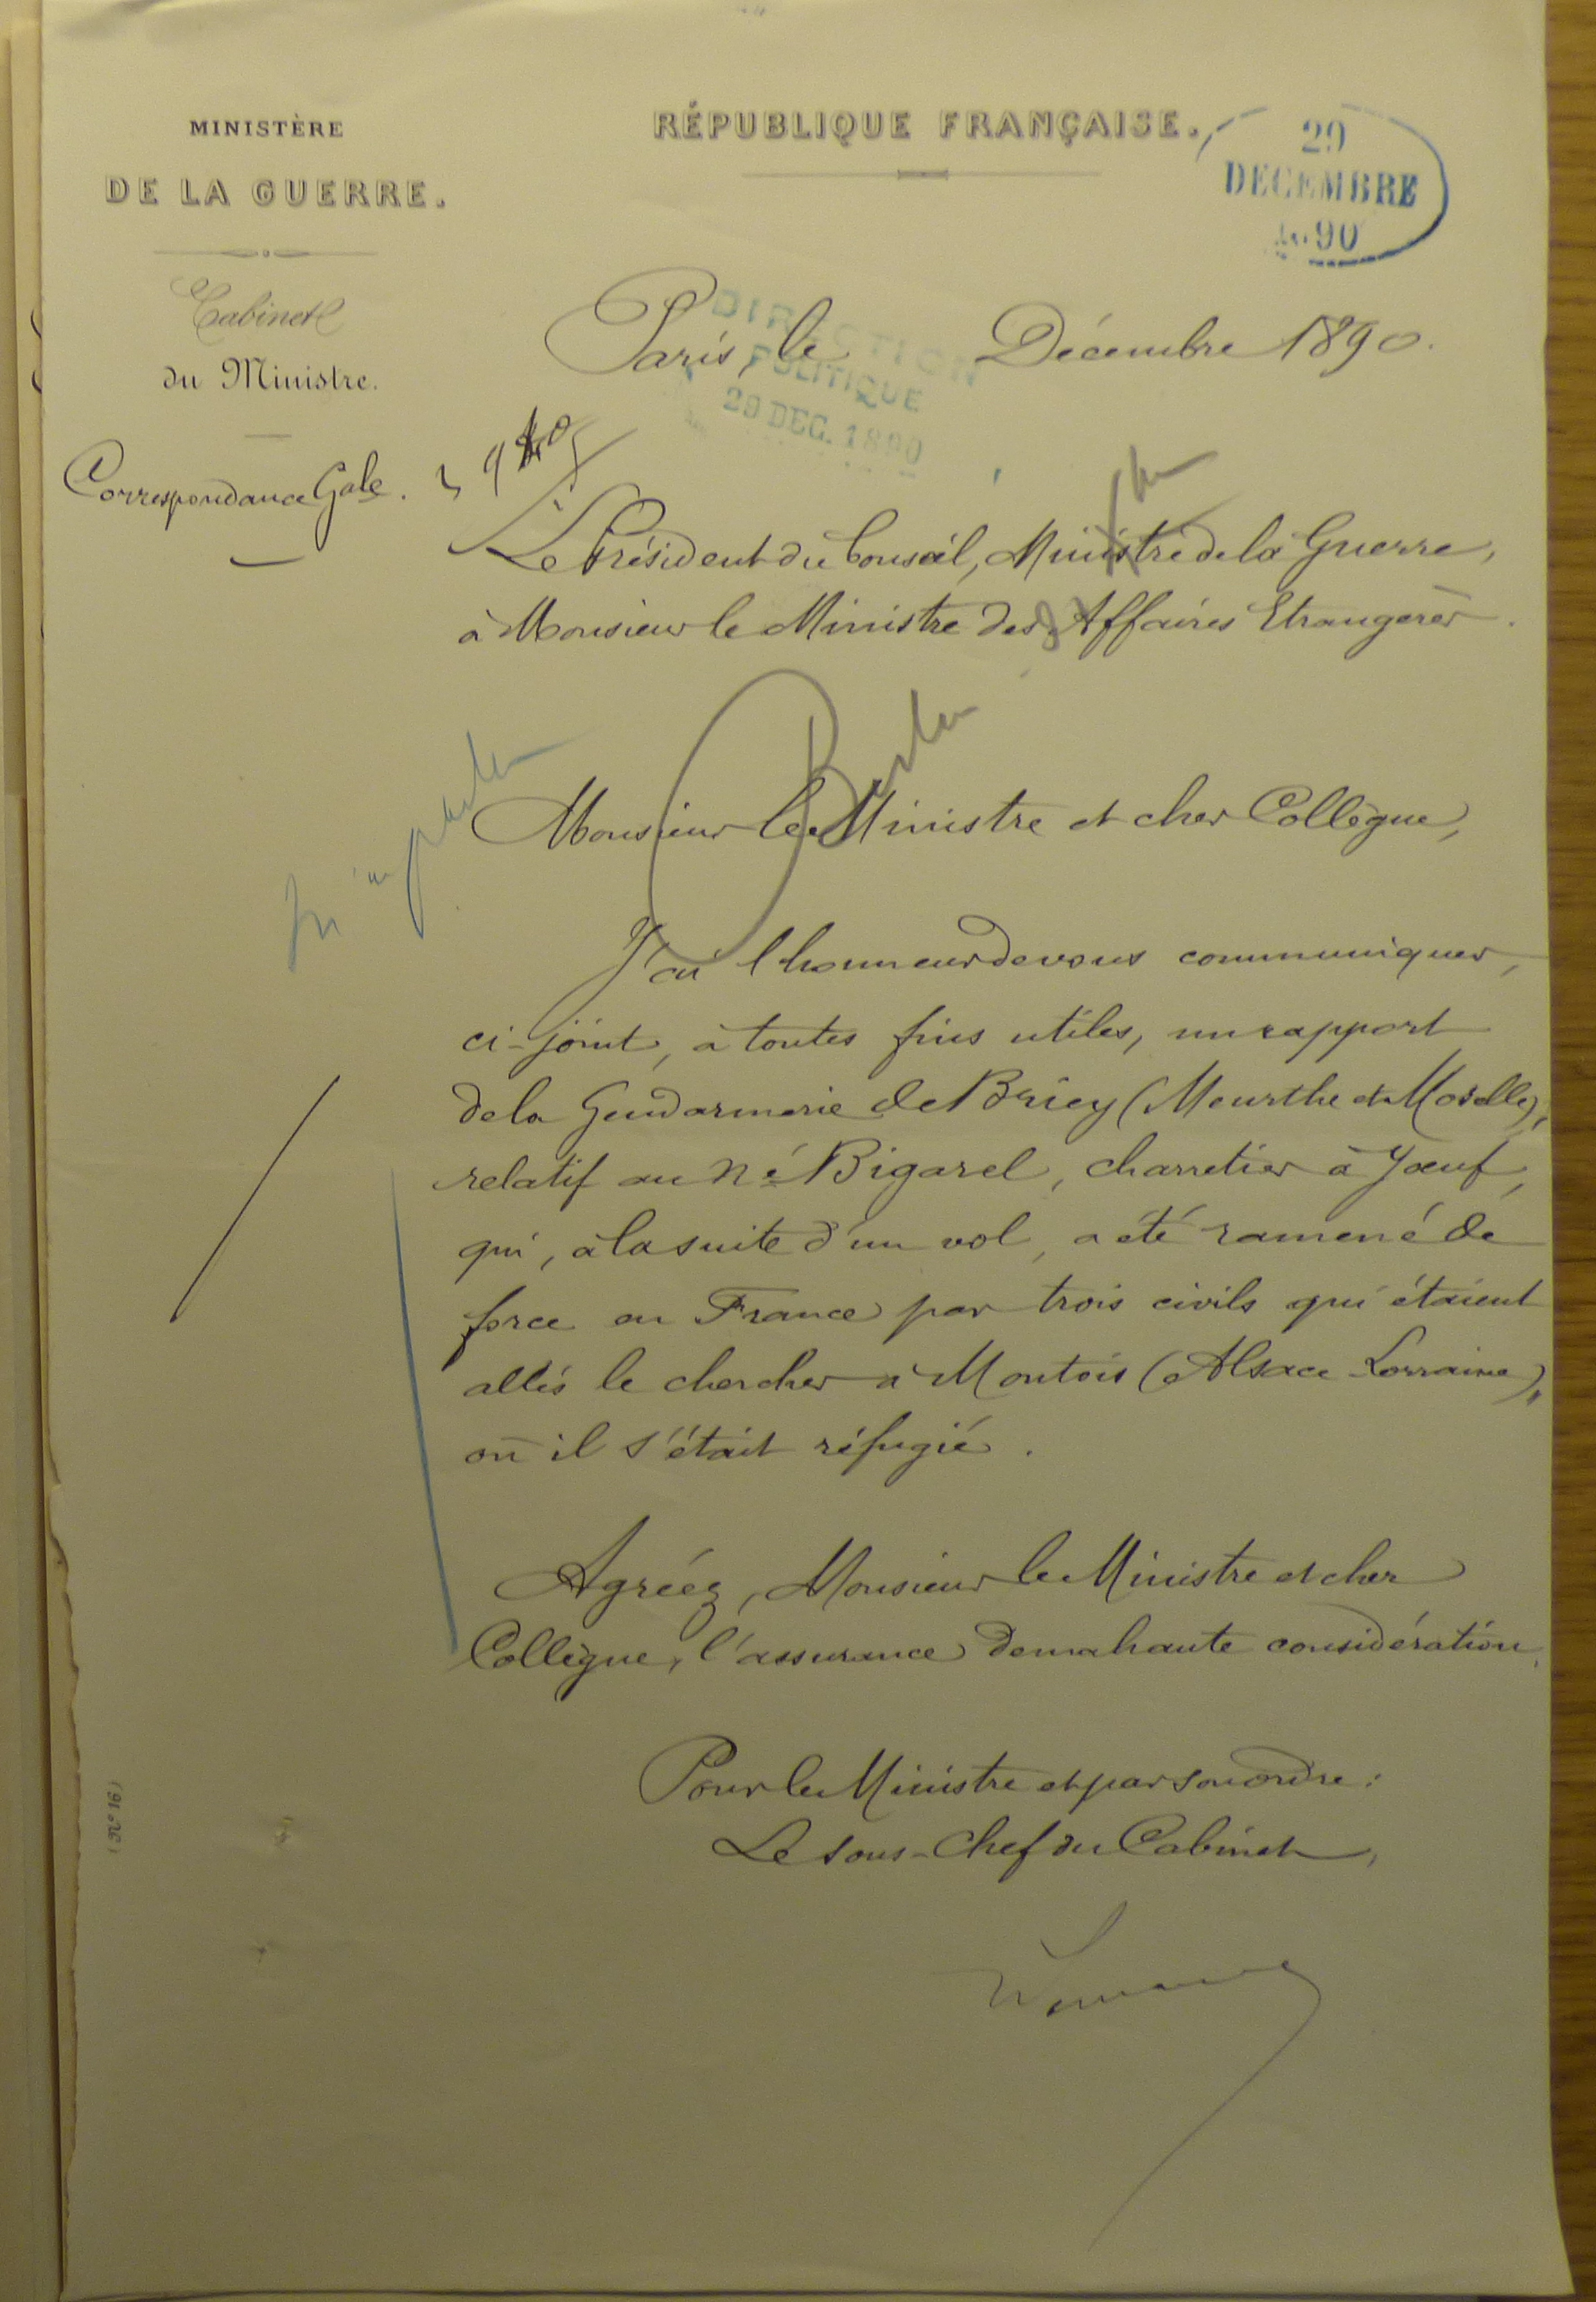 MINISTÈRE
DE LA GUERRE.
Cabinet
du Ministre.
Correspondance Gale.
RÉPUBLIQUE FRANÇAISE.
29
DECEMBRE
1890
Paris, le Décembre 1890.
DIRECTION
POLITIQUE
29 DEC. 1890
Le Président du Conseil, Ministre de la Guerre,
à Monsieur le Ministre des Affaires Etrangères.
Monsieur le Ministre et cher Collègue,
J'ai l'honneur de vous communiquer,
ci-joint, à toutes fins utiles, un rapport
de la Gendarmerie de Briey (Meurthe et Moselle),
relatif au né Bigarel, charretier à Joeuf,
qui, à la suite d'un vol, a été ramené de
force en France par trois civils qui étaient
allés le chercher à Montois (Alsace-Lorraine),
où il s'était réfugié.
Agréez, Monsieur le Ministre et cher
Collègue, l'assurance de ma haute considération.
Pour le Ministre et par son ordre:
Le Sous-Chef du Cabinet,